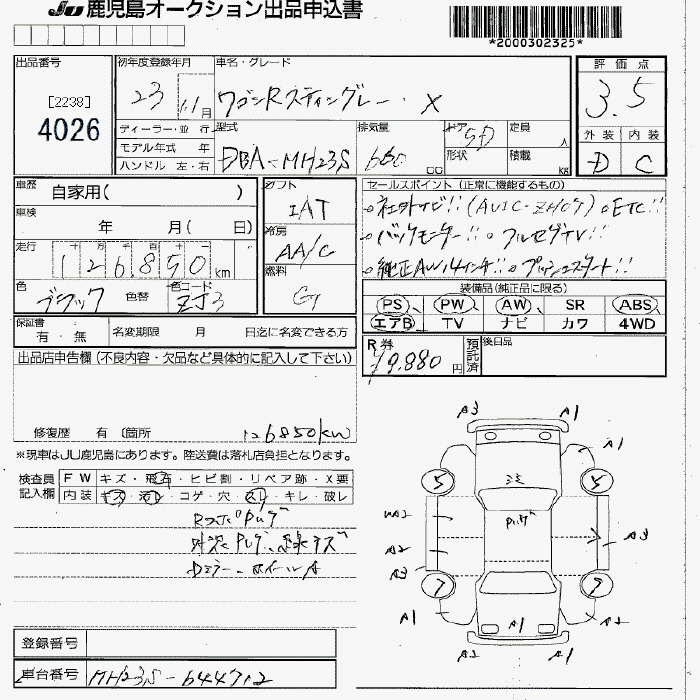 JU 鹿児島オークション出品申込書
*2000302325*
出品番号
[2238]
4026
初年度登録年月
23 11月
車名・グレード
ワゴンRスティングレー・X
評価点
3.5
外装 内装
D C
ディーラー・並行
モデル年式 年
ハンドル 左・右
型式
DBA-MH23S
排気量
660 cc
ドア 5D
形状
定員 人
積載 kg
車歴 自家用( )
車検 年 月( 日)
走行 十 万 千 百 十 一
126,850 km
色 ブラック 色替
色コード ZJ3
シフト
IAT
冷房
AA/C
燃料
G
セールスポイント (正常に機能するもの)
○社外ナビ!! (AVIC-ZH07) ○ETC!!
○バックモニター!! ○フルセグTV!!
○純正AW14インチ!! ○プッシュスタート!!
装備品(純正品に限る)
PS PW AW SR ABS
エアB TV ナビ カワ 4WD
保証書 有・無
名変期限 月 日迄に名変できる方
R券
¥9,880 円
預託済
後日品
出品店申告欄 (不良内容・欠品など具体的に記入して下さい)
修復歴 有 (箇所 126850km
※現車はJU鹿児島にあります。陸送費は落札店負担となります。
検査員記入欄
FW キズ・飛石・ヒビ割・リペア跡・X要
内装 キズ・汚レ・コゲ・穴・スレ・キレ・破レ
Dミラー、ホイールA
A3 A1
A1
5 5
A2
A3 A3
7 7
A1 A1 A1
A2 A1
登録番号
車台番号 MH23S-644712